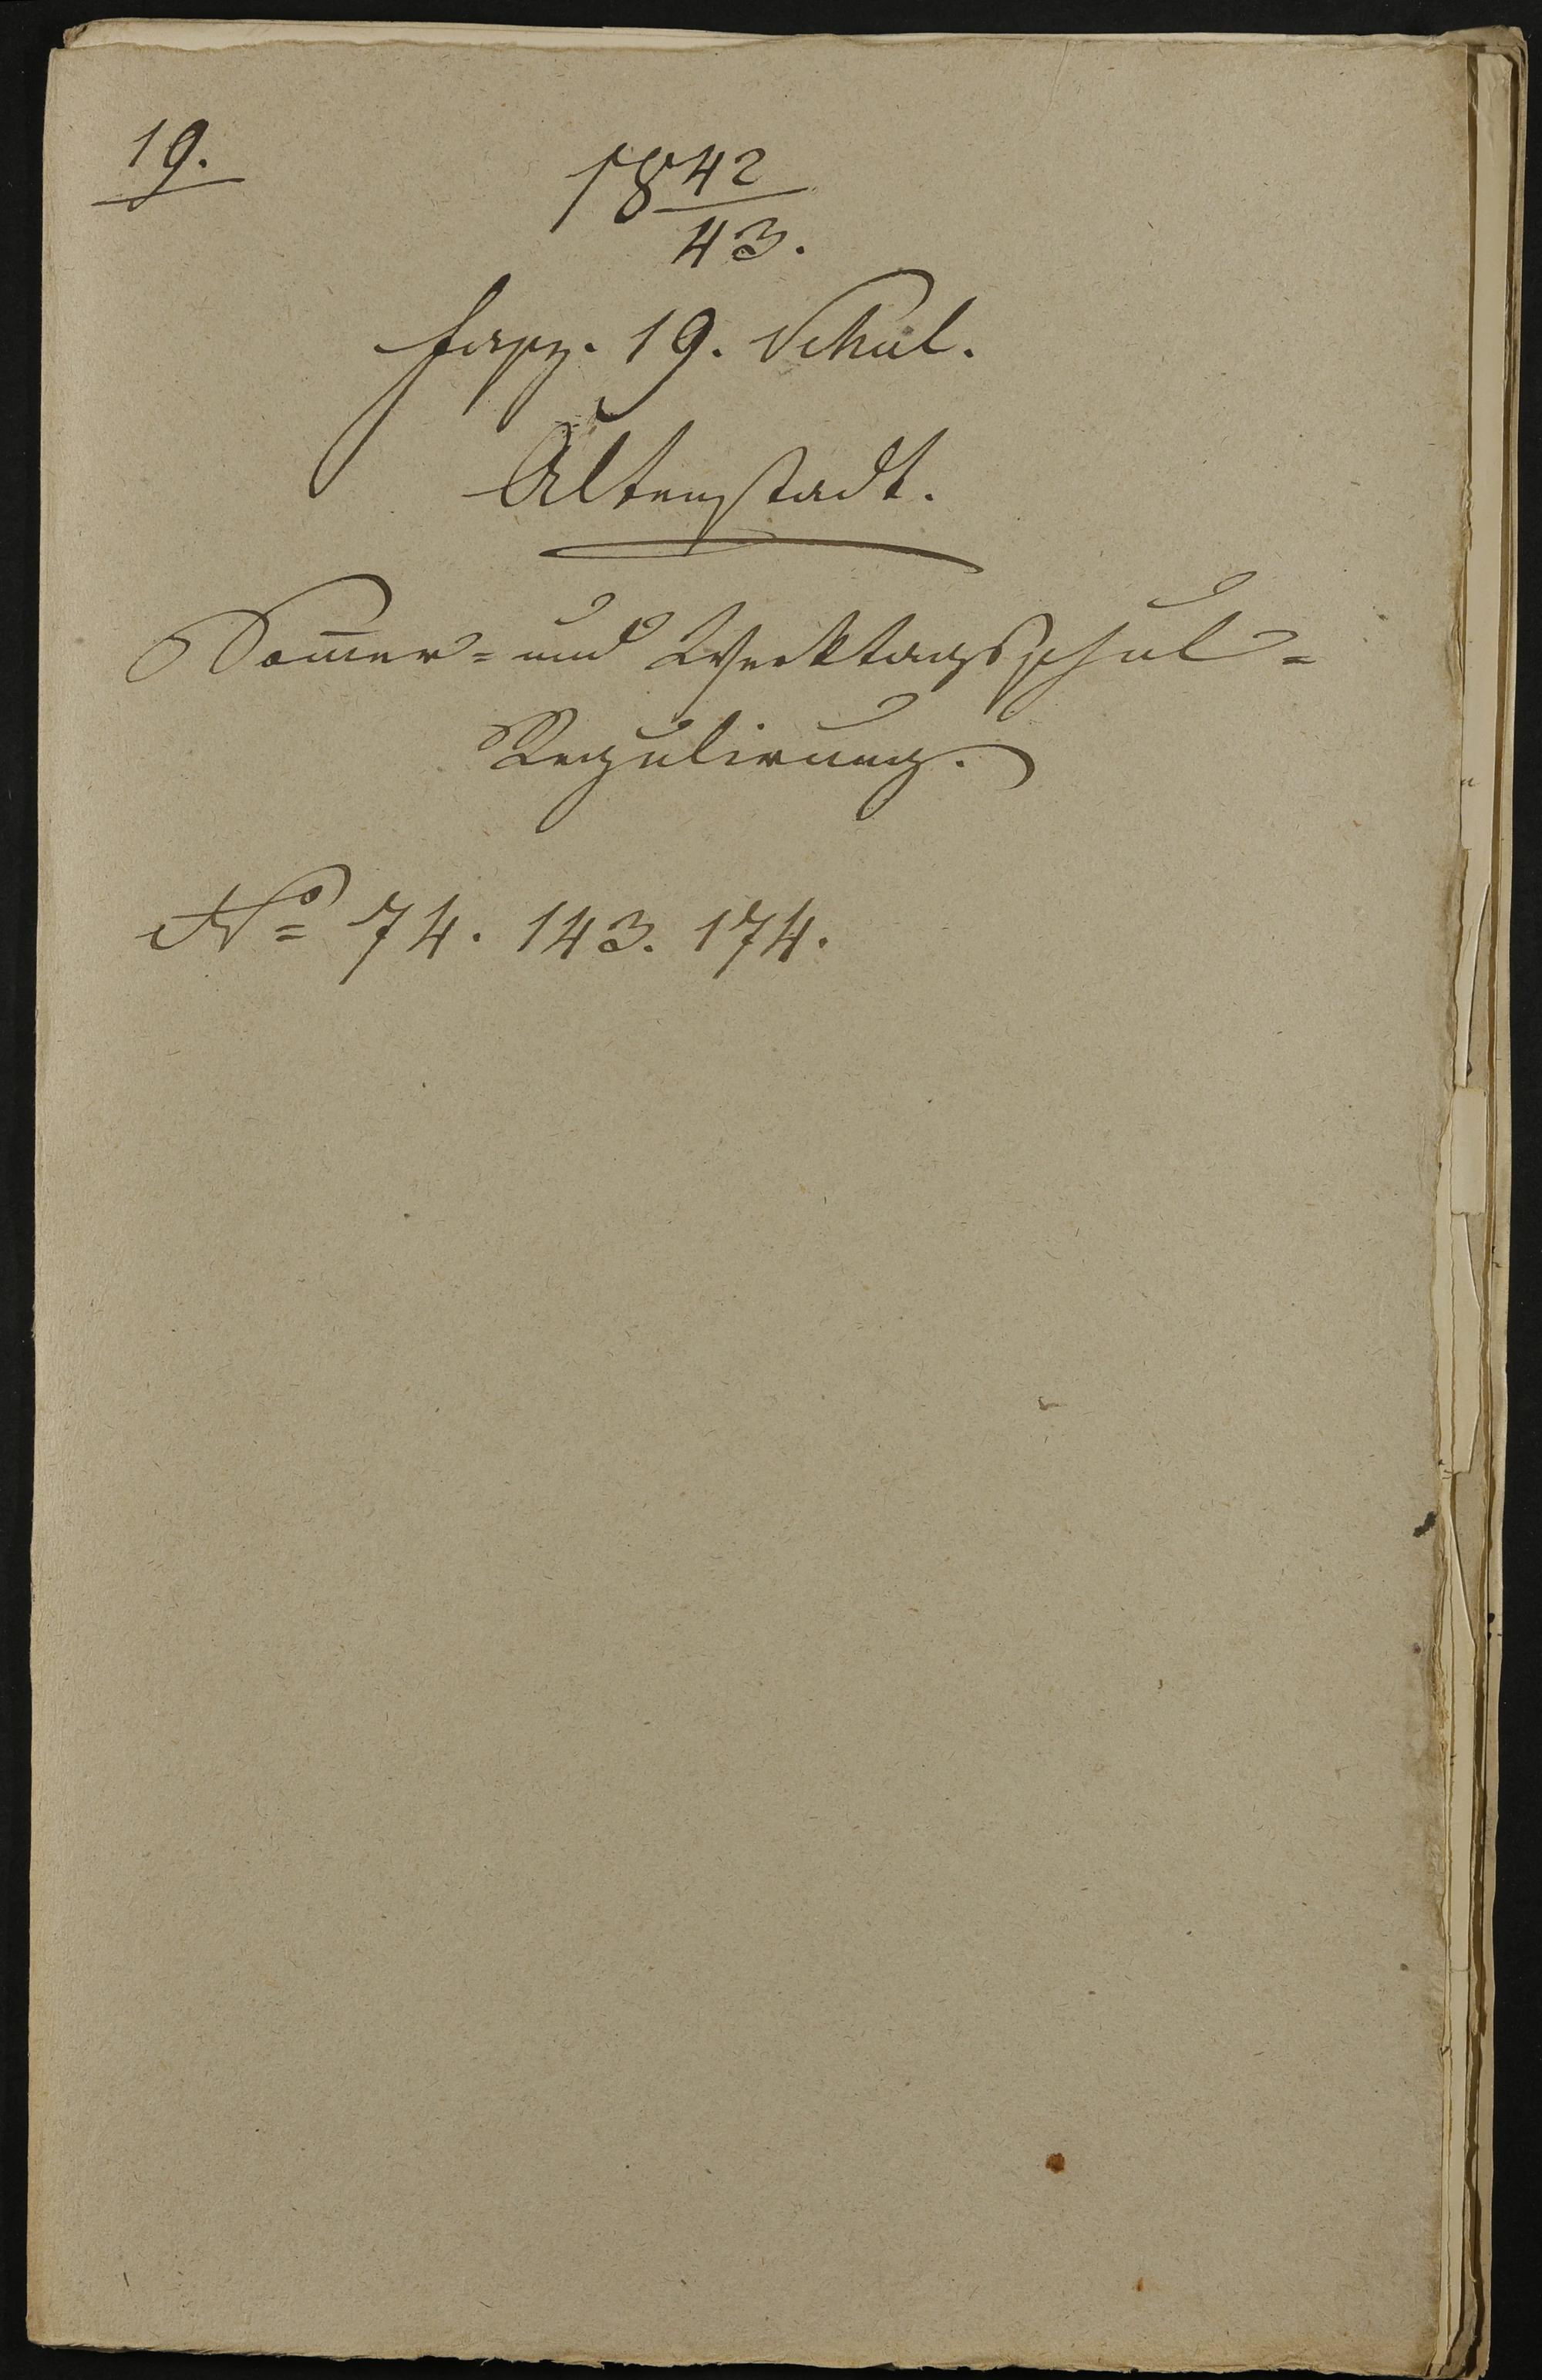 19.
1842
43.
fasz. 19. Schul.
Altenstadt.
Som̅er= und Werktagsschul=
Regulirung.
No 74. 143. 174.